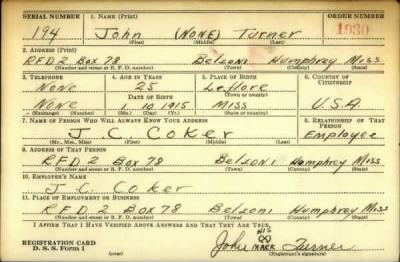 SERIAL NUMBER 1. NAME (Print) ORDER NUMBER
194 John (NONE) Turner 1930
(First) (Middle) (Last)
2. ADDRESS (Print)
R.F.D. 2 Box 78 Belzoni Humphrey Miss
(Number and street or R. F. D. number) (Town) (County) (State)
3. TELEPHONE 4. AGE IN YEARS 5. PLACE OF BIRTH 6. COUNTRY OF CITIZENSHIP
None 25 Leflore
DATE OF BIRTH (Town or county)
None 1 10 1915 Miss U.S.A
(Exchange) (Number) (Mo.) (Day) (Yr.) (State or country)
7. NAME OF PERSON WHO WILL ALWAYS KNOW YOUR ADDRESS 8. RELATIONSHIP OF THAT PERSON
J. C. COKER Employee
(Mr., Mrs., Miss) (First) (Middle) (Last)
9. ADDRESS OF THAT PERSON
R.F.D. 2 Box 78 Belzoni Humphrey Miss
(Number and street or R. F. D. number) (Town) (County) (State)
10. EMPLOYER'S NAME
J. C. Coker
11. PLACE OF EMPLOYMENT OR BUSINESS
R.F.D. 2 Box 78 Belzoni Humphrey Miss
(Number and street or R. F. D. number) (Town) (County) (State)
I AFFIRM THAT I HAVE VERIFIED ABOVE ANSWERS AND THAT THEY ARE TRUE.
HIS
REGISTRATION CARD John (X) Turner
D. S. S. Form 1 (over) MARK (Registrant's signature)